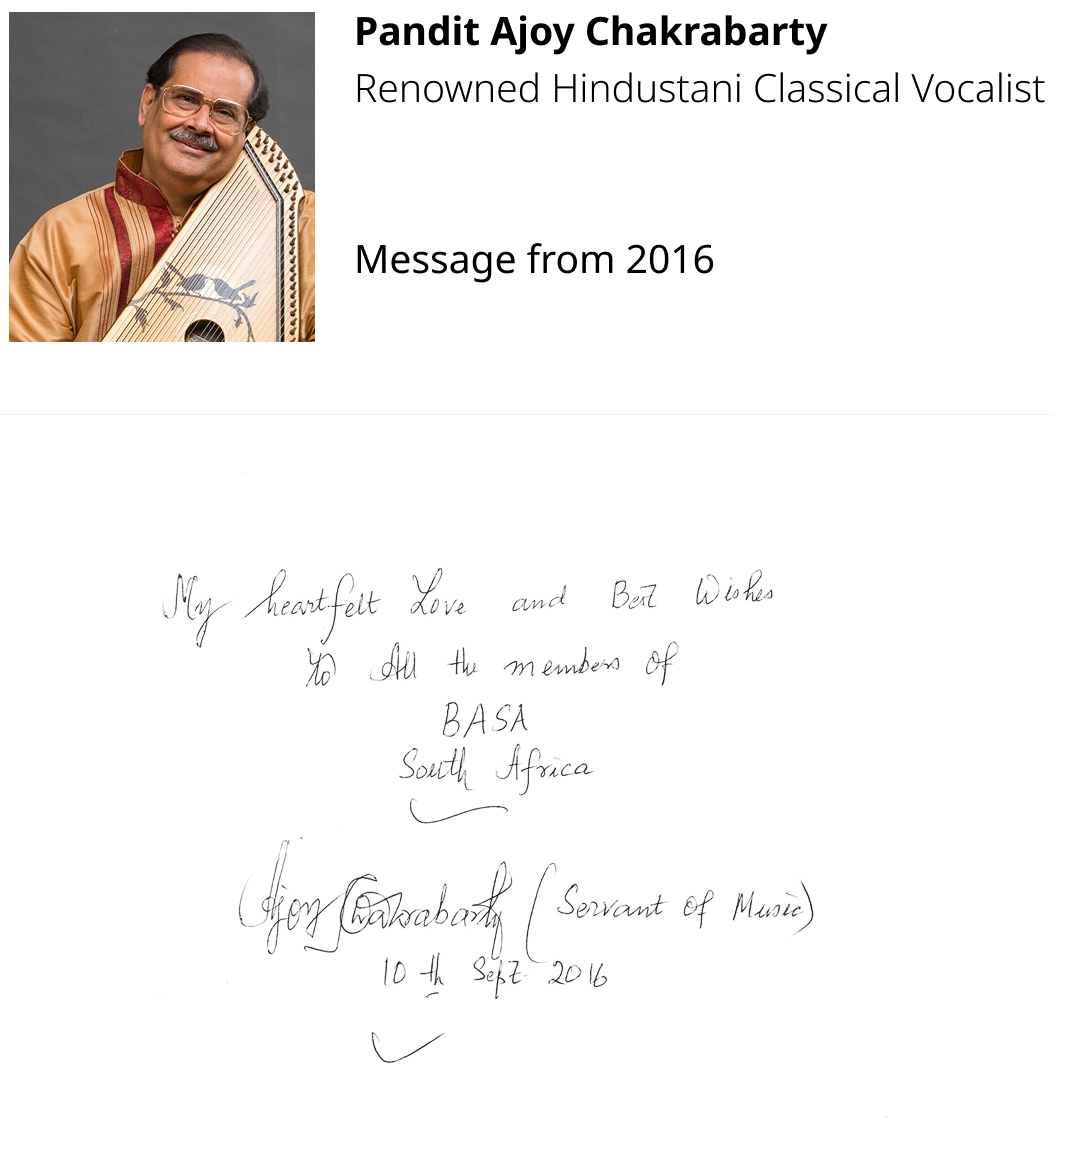 Pandit Ajoy Chakrabarty
Renowned Hindustani Classical Vocalist
Message from 2016
My heartfelt Love and Best Wishes
To All the members of
BASA
South Africa
Ajoy Chakrabarty (Servant of Music)
10 th Sept 2016